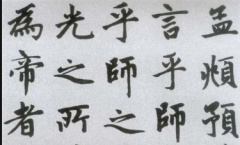 孟頫預
言乎師
乎師之
光之所
為帝者